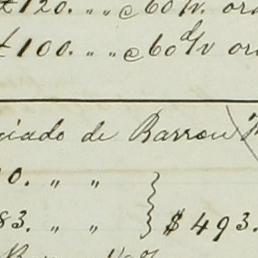 £120. " " @ 60 d/v. or
£100. " " @ 60 d/v or
ciado de Barrow
0. " "
83. " " } $493.